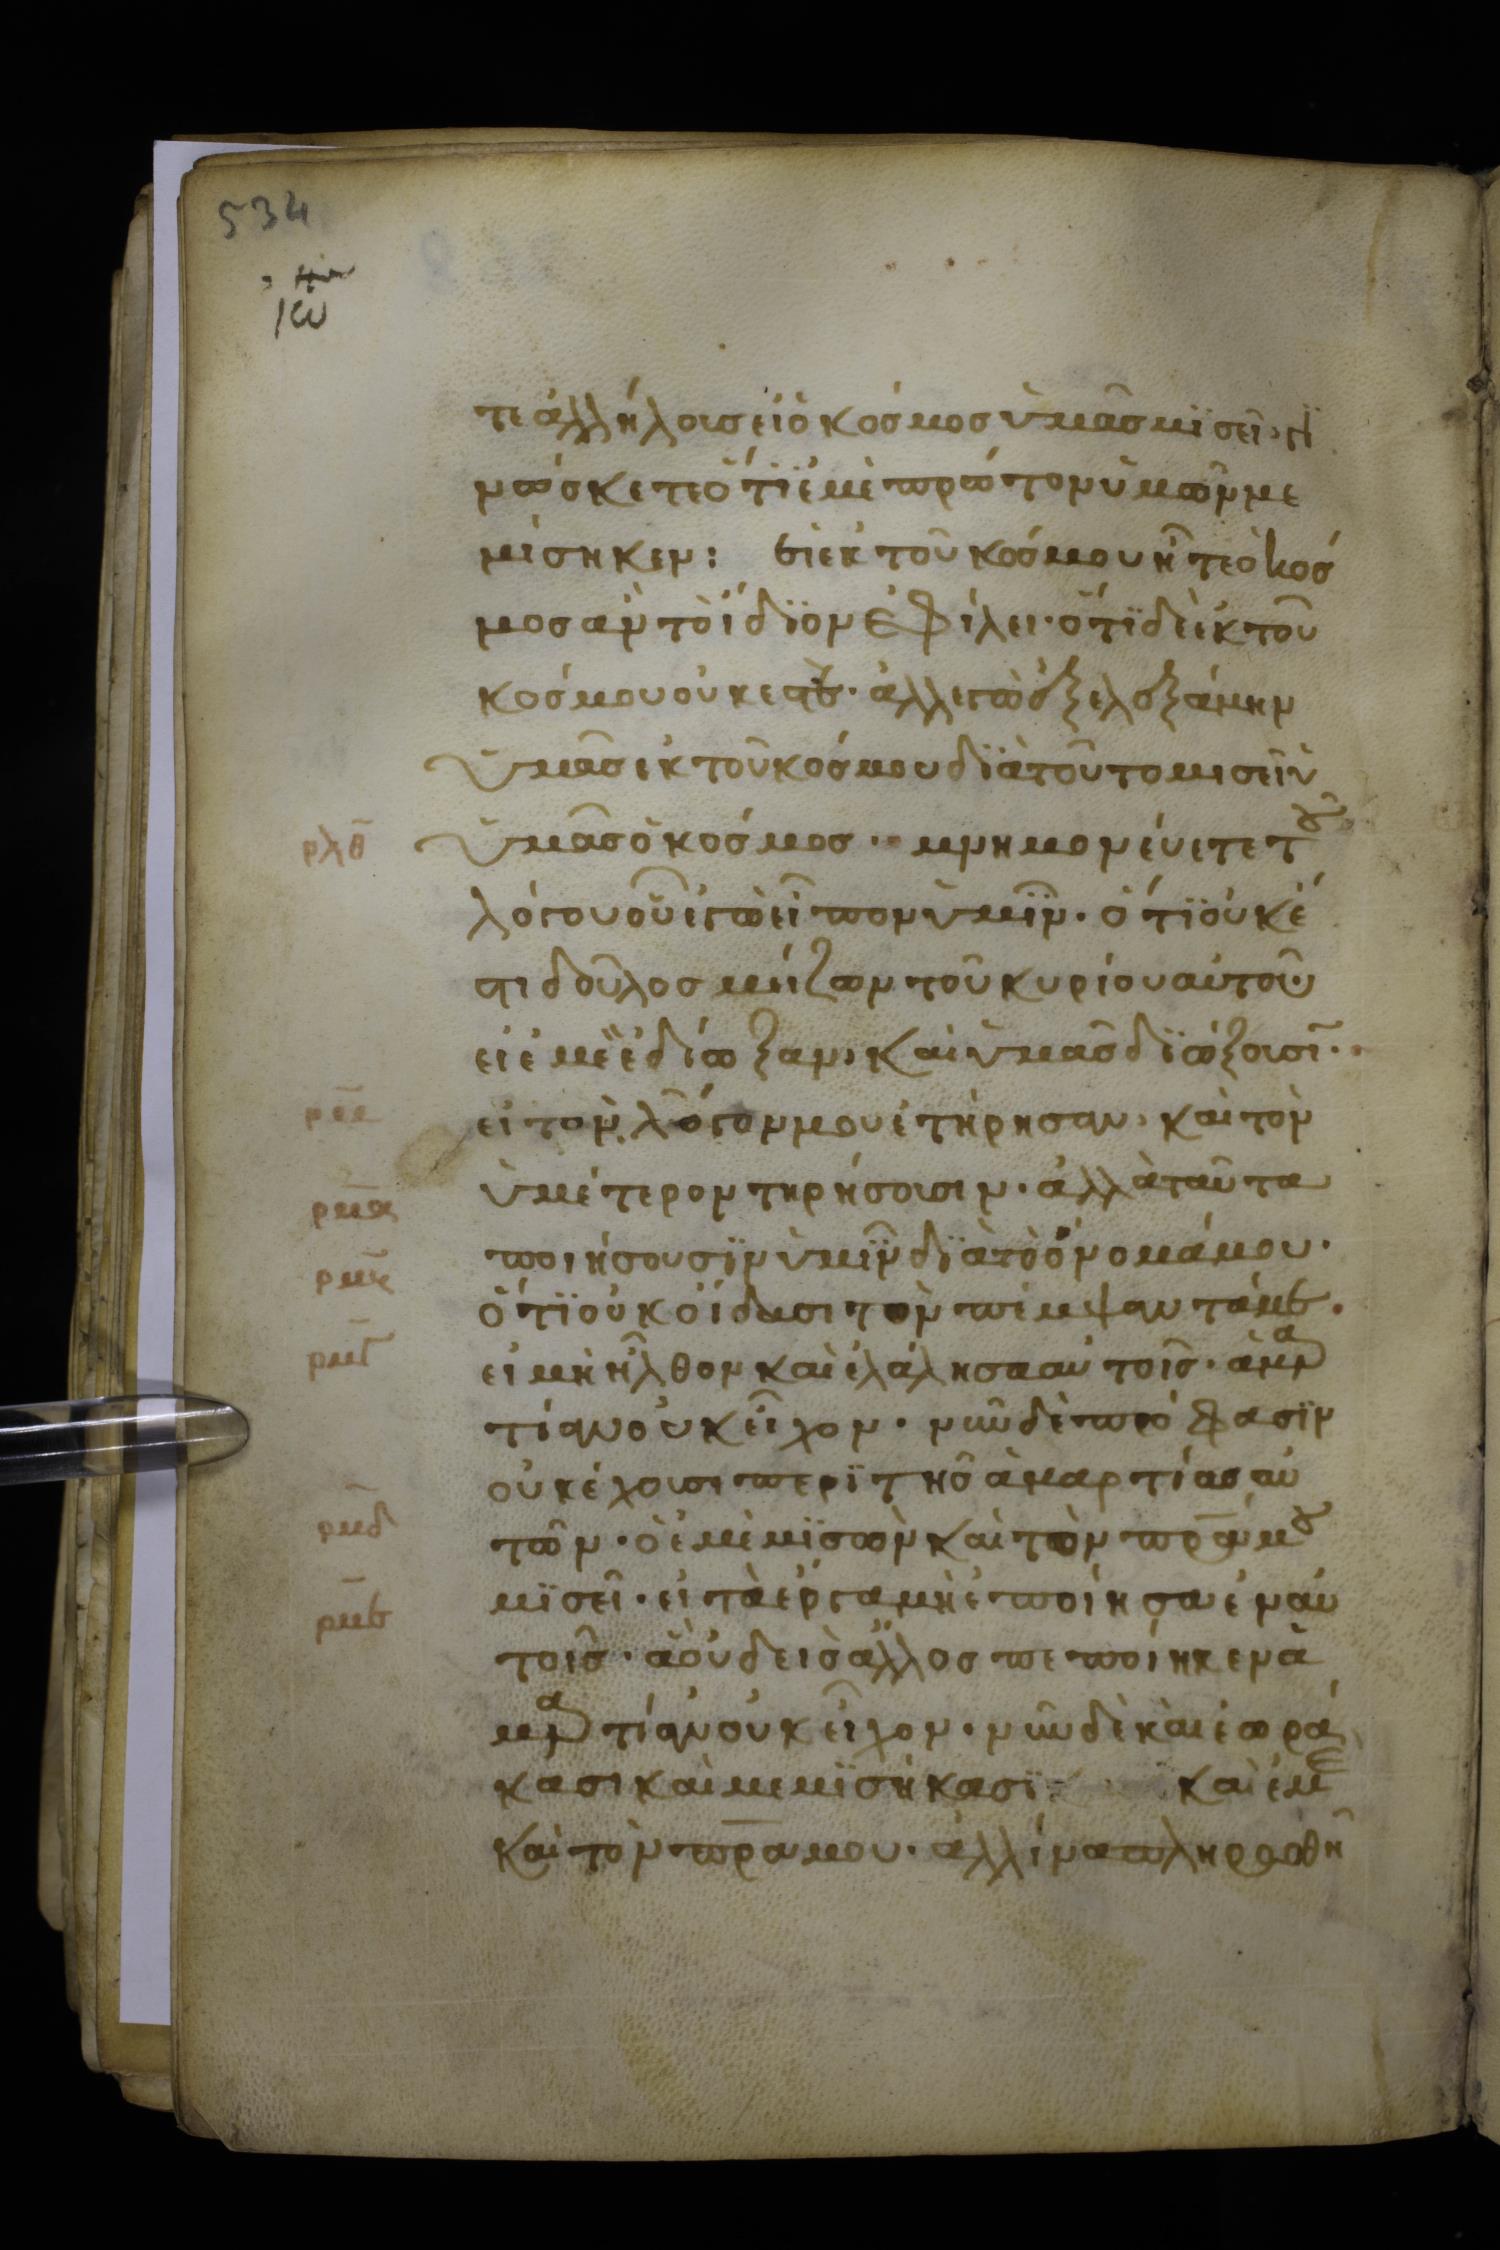 534
ιω
τε ἀλλήλους εἰ ὁ κόσμος ὑμᾶς μϊσεῖ· γϊ
νώσκετε ὅτϊ ἐμὲ πρῶτον ὑμῶν με
μίσηκεν: εἰ ἐκ τοῦ κόσμου ἦτε ὁ κόσ
μος ἂν τὸ ἴδϊον ἐφίλει· ὅτϊ δὲ ἐκ τοῦ
κόσμου οὐκ ἐστέ· ἀλλ ἐγὼ ἐξελεξάμην
ὑμᾶς ἐκ τοῦ κόσμου δϊὰ τοῦτο μισεῖ ὑ
ρλθ ὑμᾶς ὁ κόσμος· μνημονεύετε τοῦ
λόγου οὗ ἐγὼ εἶπον ὑμῖν· ὅτϊ οὐκ ἔ
στι δοῦλος μείζων τοῦ κυρίου αὐτοῦ
εἰ ἐμὲ ἐδίωξαν, καὶ ὑμᾶς δϊώξουσϊ·
εἰ τὸν λόγον μου ἐτήρησαν, καὶ τὸν
ρμα ὑμέτερον τηρήσουσιν· ἀλλὰ ταῦτα
ποιήσουσϊν ὑμῖν δϊὰ τὸ ὄνομά μου·
ὅτϊ οὐκ οἴδασι τὸν πέμψαντά με·
ρμγ εἰ μὴ ἦλθον καὶ ἐλάλησα αὐτοῖς· ἁμαρ
τίαν οὐκ εἶχον· νῦν δὲ πρόφασϊν
οὐκ ἔχουσι περὶ τῆς ἁμαρτίας αὐ
ρμδ τῶν· ὁ ἐμὲ μϊσῶν καὶ τὸν πρα μου
ρμε μϊσεῖ· εἰ τὰ ἔργα μὴ ἐποίησα ἐν αὐ
τοῖς· ἃ οὐδεὶς ἄλλος πεποίηκεν ἁ
μαρτίαν οὐκ εἶχον· νῦν δὲ καὶ ἑωρά
κασι καὶ μεμϊσήκασϊ καὶ ἐμὲ
καὶ τὸν πρα μου· ἀλλ ἵνα πληρωθῆ